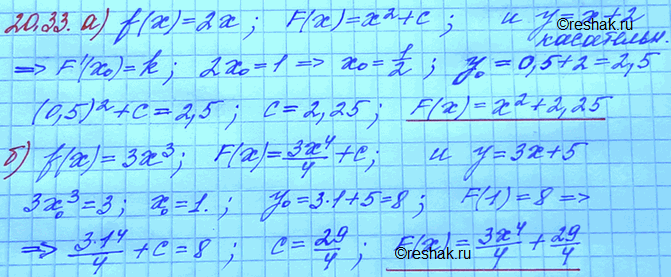 20.33. а) f(x)=2x; F(x)=x²+c; и y=x+2
касательн.
=> F'(x₀)=k; 2x₀=1 => x₀=1/2; y₀=0,5+2=2,5
(0,5)²+c=2,5; c=2,25; F(x)=x²+2,25
б) f(x)=3x³; F(x)=3x⁴/4+c; и y=3x+5
3x₀³=3; x₀=1. ; y₀=3·1+5=8; F(1)=8 =>
=> 3·1⁴/4+c=8; c=29/4; F(x)=3x⁴/4+29/4
©reshak.ru
©reshak.ru
©reshak.ru